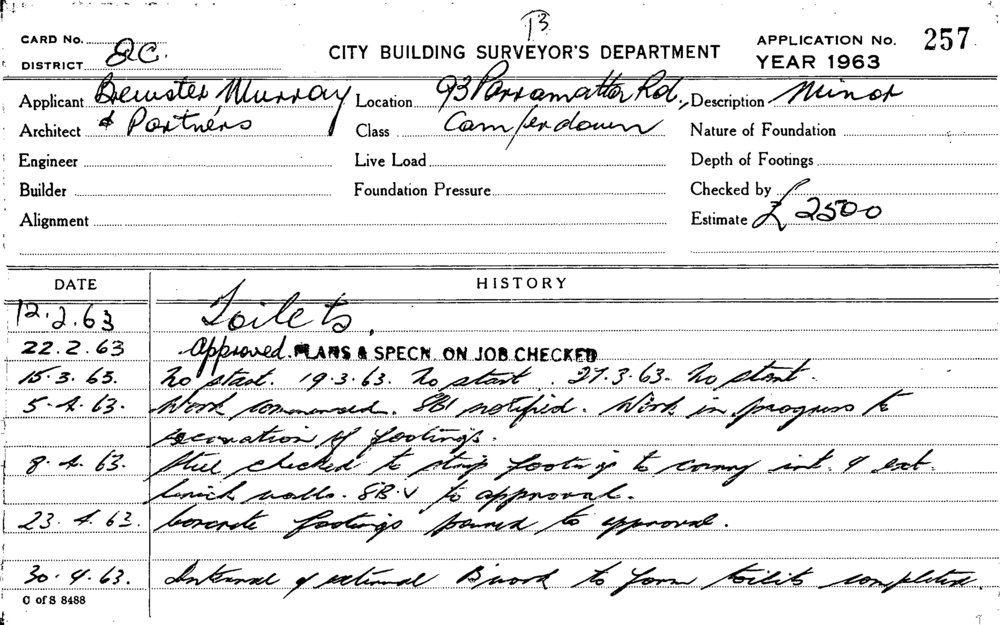 13
CARD No.
DISTRICT
CITY BUILDING SURVEYOR'S DEPARTMENT
APPLICATION No. 257
YEAR 1963
Applicant Brewster, Murray Location 93 Parramatta Rd., Description Minor
Architect & Partners Class Camperdown Nature of Foundation
Engineer Live Load Depth of Footings
Builder Foundation Pressure Checked by
Alignment Estimate £ 2500
DATE HISTORY
12.2.63 Toilets.
22.2.63 Approved. PLANS & SPECN. ON JOB CHECKED
15.3.63. No start. 19.3.63. No start. 27.3.63. No start.
5.4.63. Work commenced. SBI notified. Work in progress to
excavation of footings.
8.4.63. Steel checked to strip footings to carry int. & ext.
brick walls. to approval.
23.4.63. Concrete footings poured to approval.
30.4.63. Internal & external B'work to form toilets completed.
C of S 8488